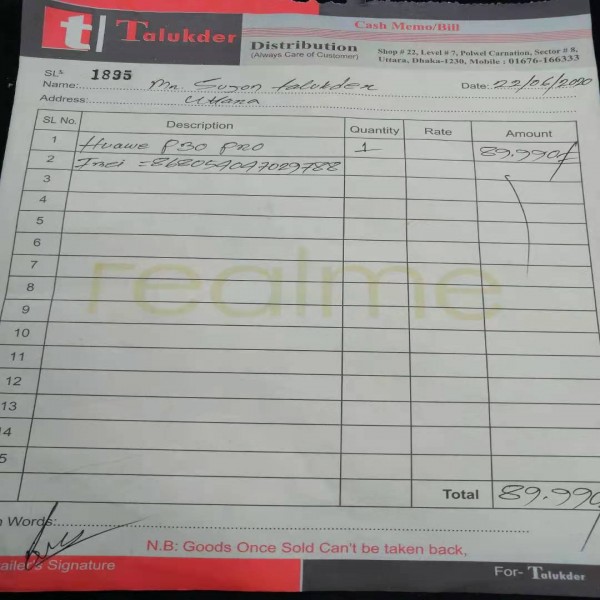 t Talukder
Cash Memo/Bill
Distribution
(Always Care of Customer)
Shop # 22, Level # 7, Polwel Carnation, Sector # 8,
Uttara, Dhaka-1230, Mobile : 01676-166333
SL: 1895
Name: Mr. Suzon talukder Date: 22/06/2020
Address: Uttara
SL No. Description Quantity Rate Amount
1 Huawe P30 PRO 1 89.990/
2 Imei =868054047029788
3
4
5
6
7
realme
8
9
10
11
12
13
14
5
Total 89.990/
n Words:
N.B: Goods Once Sold Can't be taken back,
ailer's Signature
For- Talukder